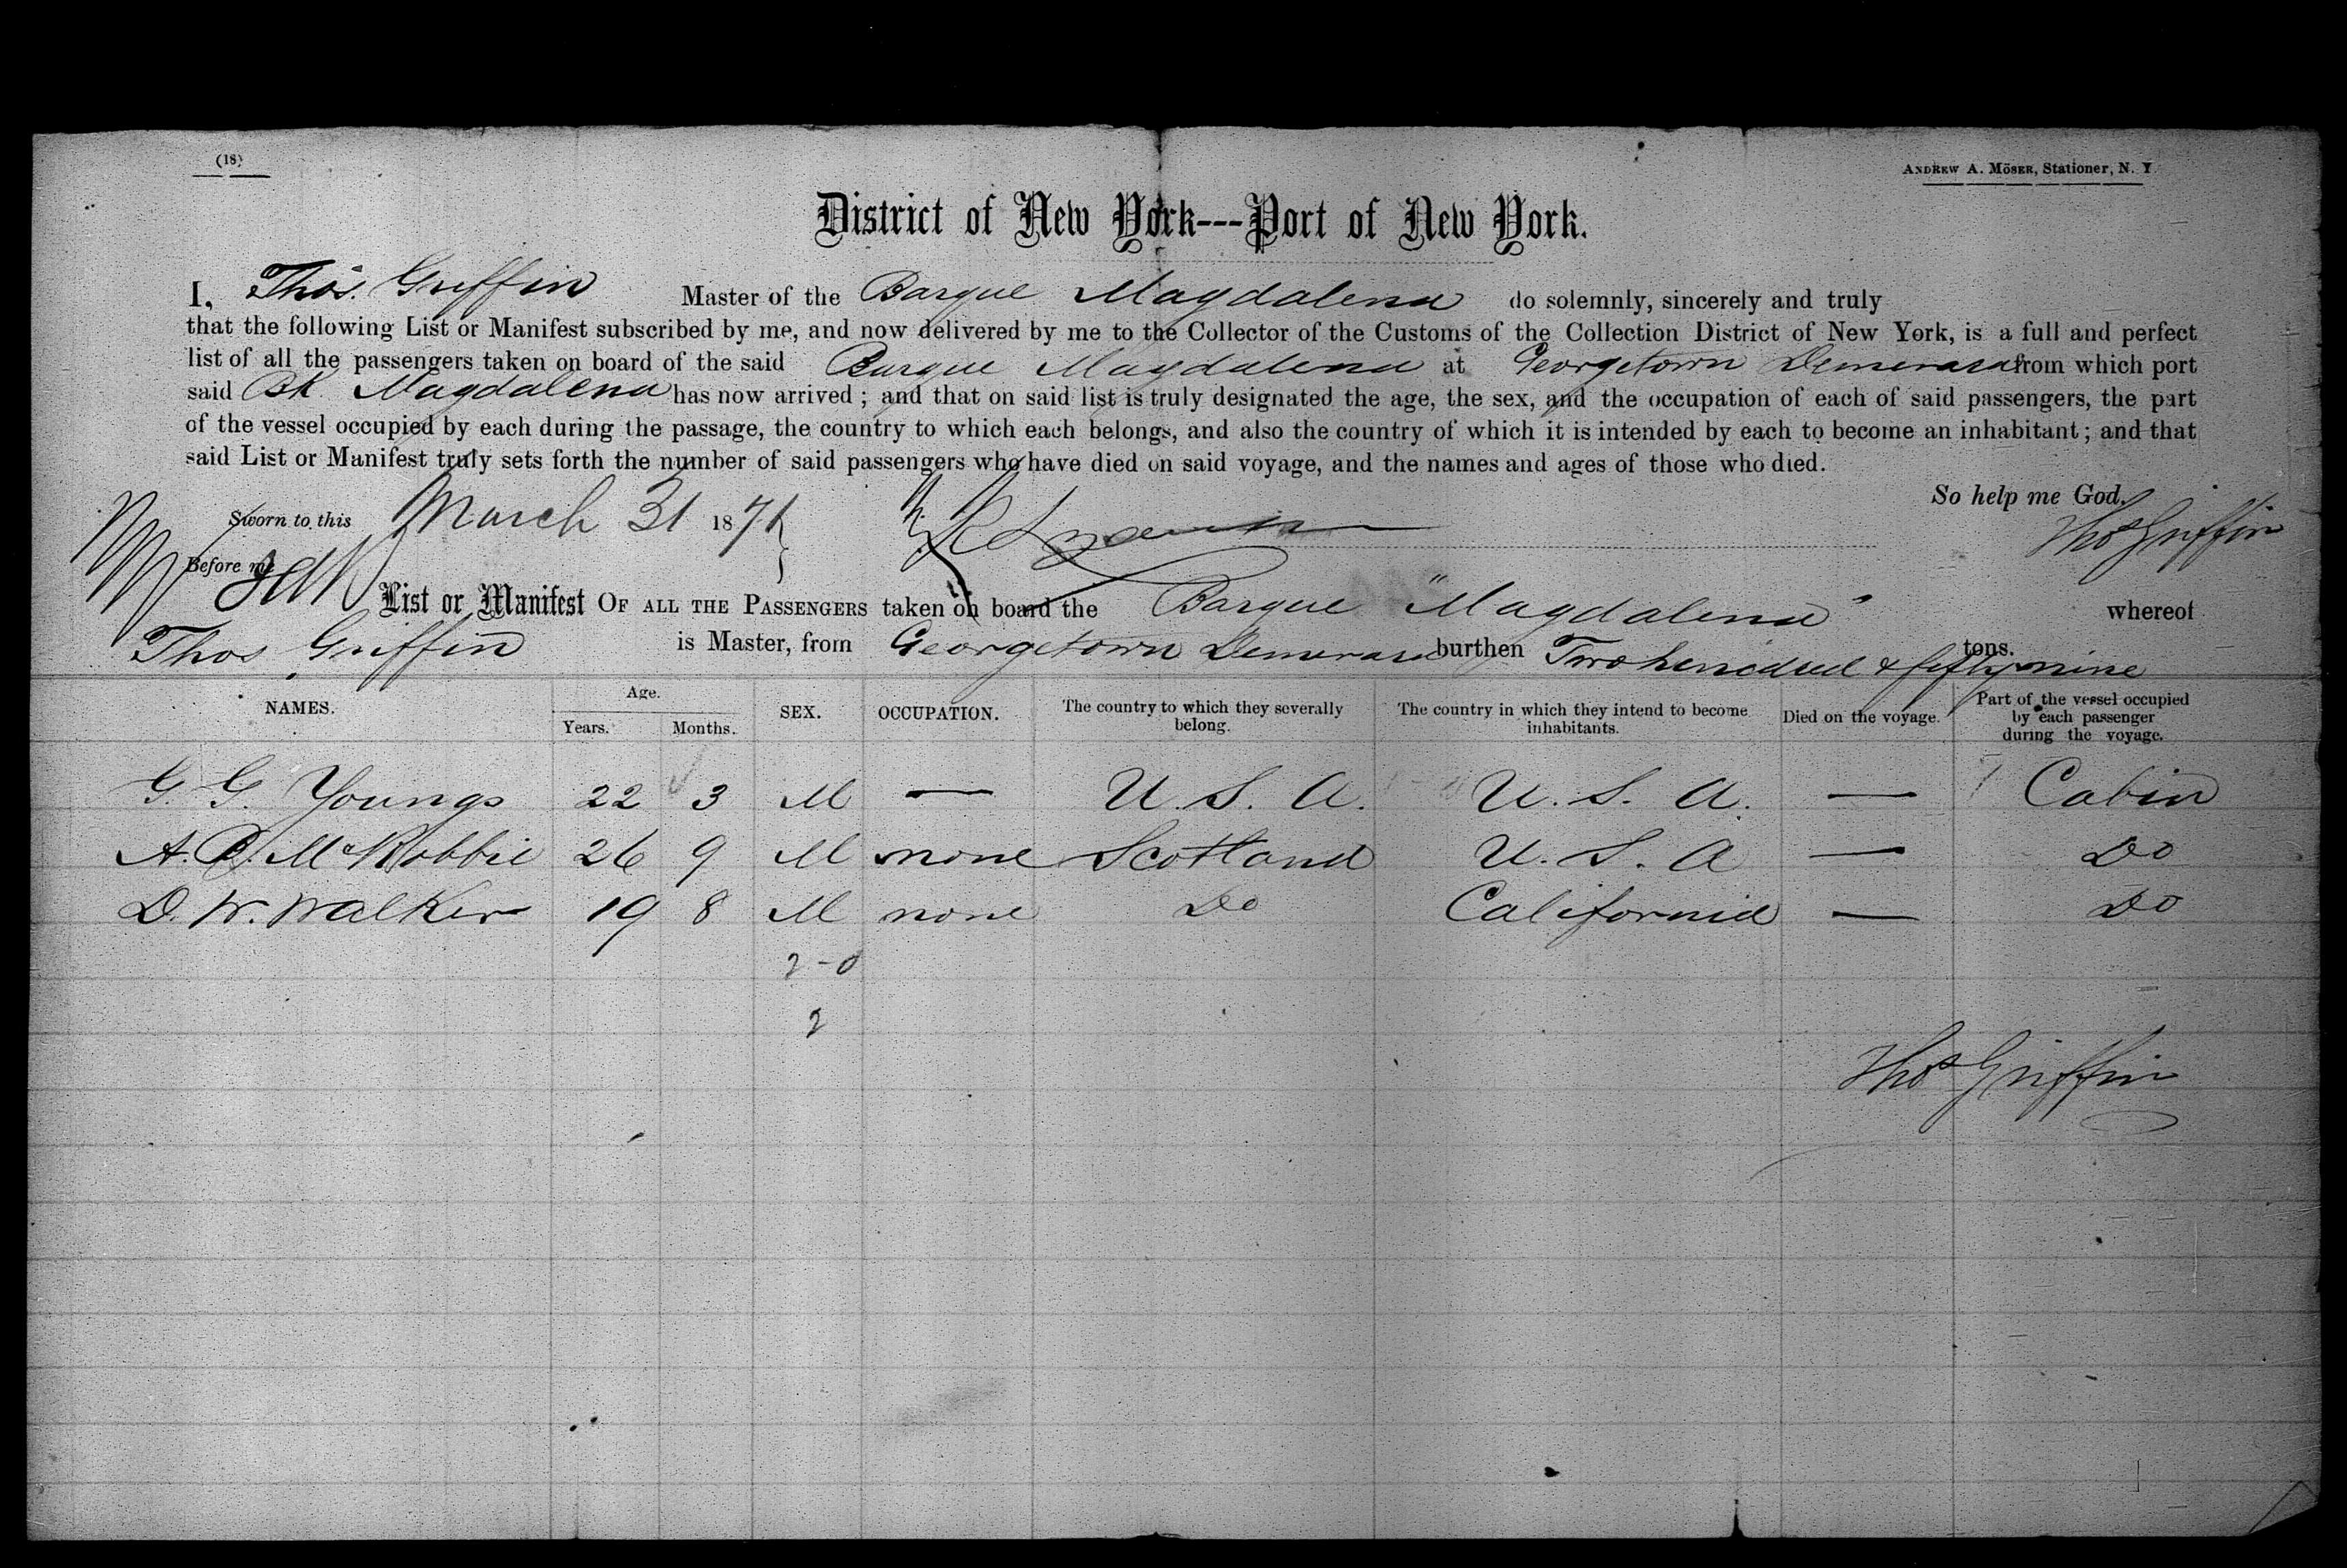 (18)
ANDREW A. MÖSER, Stationer, N. Y.
District of New York---Port of New York.
I, Thos. Griffin Master of the Barque Magdalena do solemnly, sincerely and truly
that the following List or Manifest subscribed by me, and now delivered by me to the Collector of the Customs of the Collection District of New York, is a full and perfect
list of all the passengers taken on board of the said Barque Magdalena at Georgetown Demerara from which port
said Bk. Magdalena has now arrived; and that on said list is truly designated the age, the sex, and the occupation of each of said passengers, the part
of the vessel occupied by each during the passage, the country to which each belongs, and also the country of which it is intended by each to become an inhabitant; and that
said List or Manifest truly sets forth the number of said passengers who have died on said voyage, and the names and ages of those who died.
So help me God.
Sworn to this March 31 1871 Thos Griffin
Before me
List or Manifest OF ALL THE PASSENGERS taken on board the Barque "Magdalena" whereof
Thos Griffin is Master, from Georgetown Demerara burthen Two hundred & fifty nine tons.
NAMES. Age. Years. Months. SEX. OCCUPATION. The country to which they severally belong. The country in which they intend to become inhabitants. Died on the voyage. Part of the vessel occupied by each passenger during the voyage.
G. G. Youngs 22 3 M — U. S. A. U. S. A. — Cabin
A. D. McRobbie 26 9 M none Scotland U. S. A — Do
D. W. Walker 19 8 M none Do California — Do
2-0
2
Thos Griffin